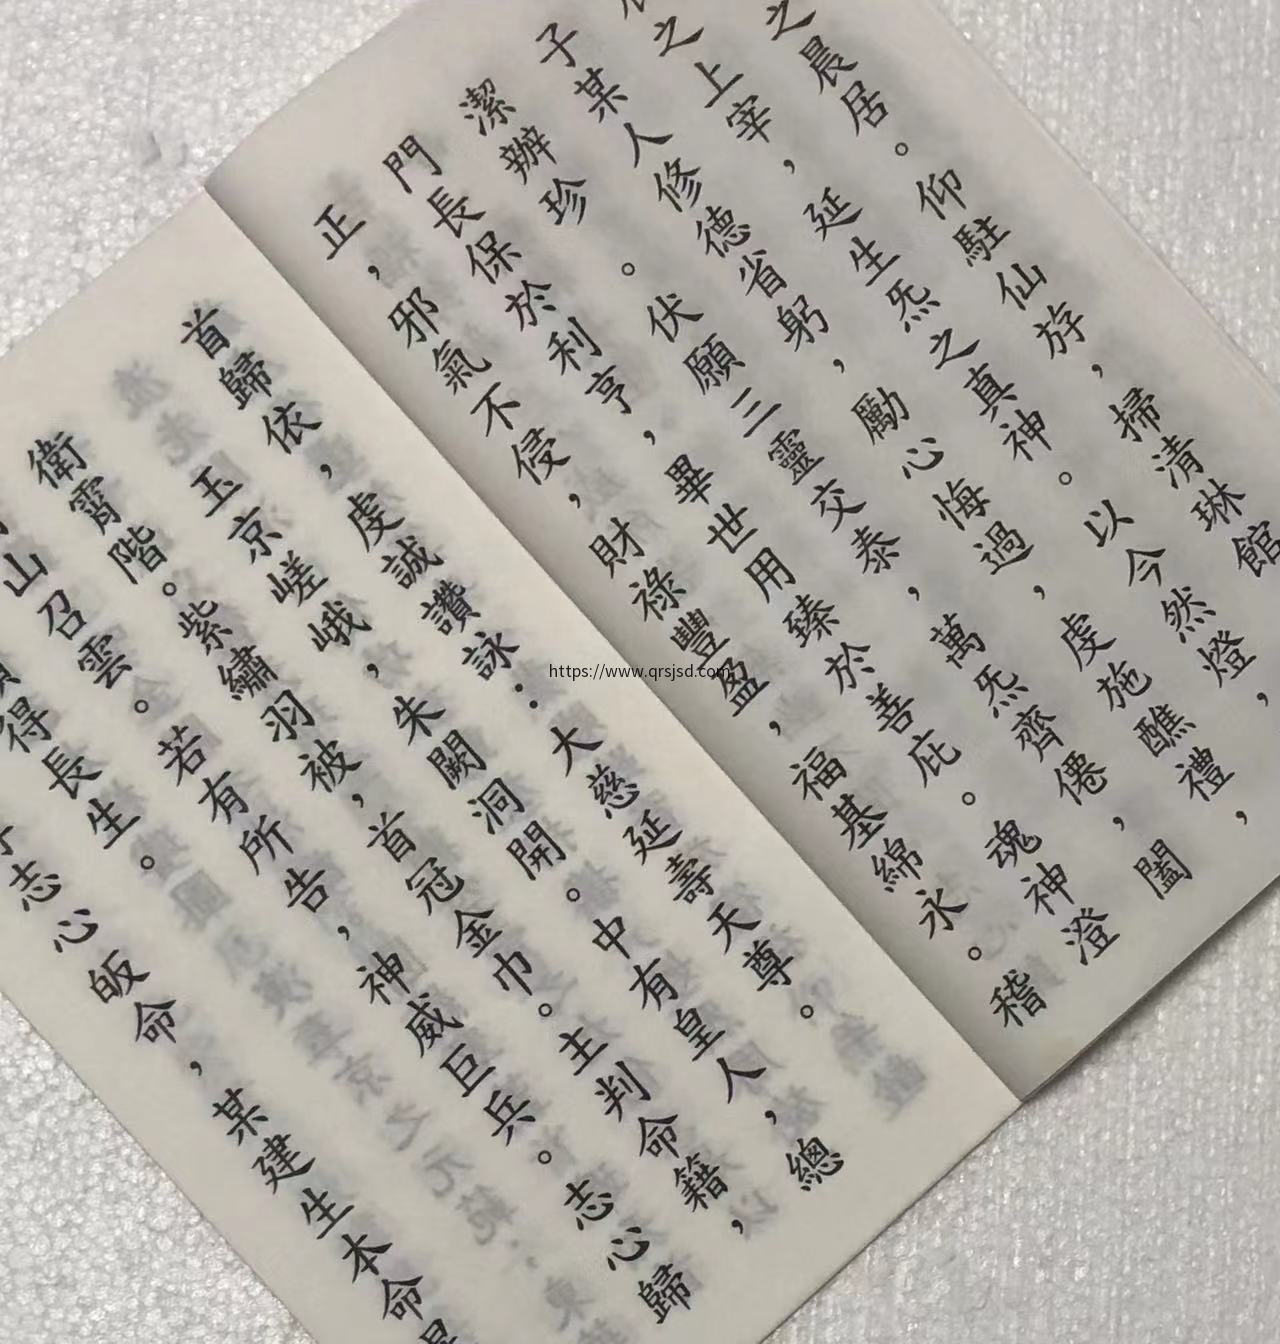 之晨居。仰駐仙斿，掃清琳館
之上宰，延生炁之真神。以今然燈，
子某人修德省躬，勵心悔過，虔施醮禮，
潔辦珍。伏願三靈交泰，萬炁齊僊，闔
門長保於利亨，畢世用臻於善庇。魂神澄
正，邪氣不侵，財祿豐盈，福基綿永。稽
首歸依，虔誠讚詠：大慈延壽天尊。
玉京嵯峨，朱闕洞開。中有皇人，總
衛霄階。紫繡羽被，首冠金巾。主判命籍，
山召雲。若有所告，神威巨兵。志心歸
得長生。
志心皈命，某建生本命
https://www.qrsjsd.com